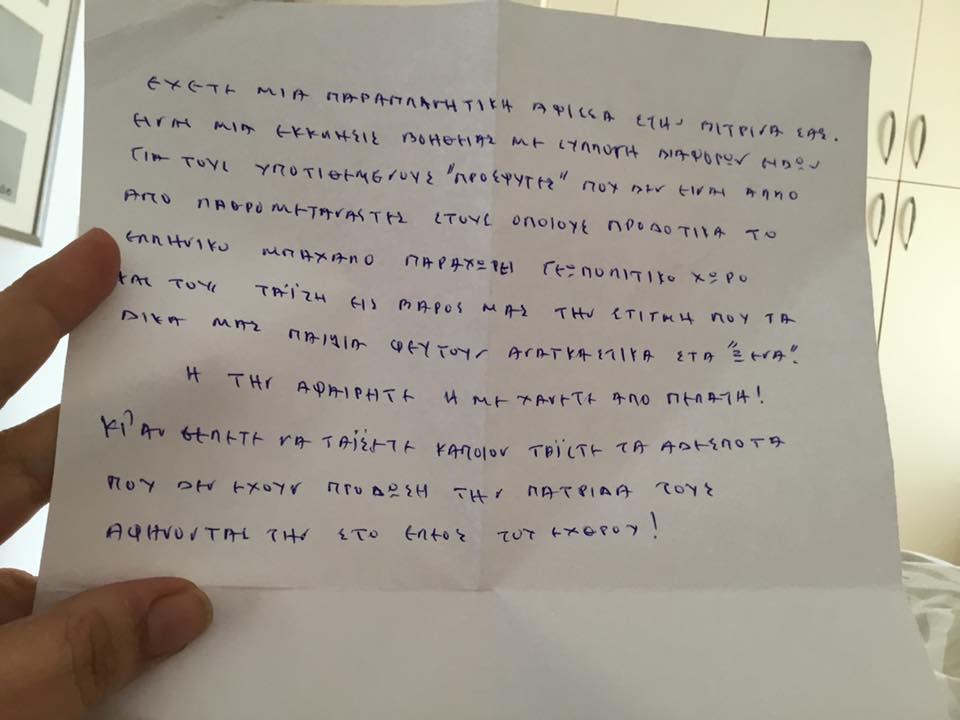 ΕΧΕΤΕ ΜΙΑ ΠΑΡΑΠΛΑΝΗΤΙΚΗ ΑΦΙΣΣΑ ΣΤΗΝ ΒΙΤΡΙΝΑ ΣΑΣ.
ΕΙΝΑΙ ΜΙΑ ΕΚΚΛΗΣΙΣ ΒΟΗΘΕΙΑΣ ΜΕ ΣΥΛΛΟΓΗ ΔΙΑΦΟΡΩΝ ΕΙΔΩΝ
ΓΙΑ ΤΟΥΣ ΥΠΟΤΙΘΕΜΕΝΟΥΣ "ΠΡΟΣΦΥΓΕΣ" ΠΟΥ ΔΕΝ ΕΙΝΑΙ ΑΛΛΟ
ΑΠΟ ΛΑΘΡΟΜΕΤΑΝΑΣΤΕΣ ΣΤΟΥΣ ΟΠΟΙΟΥΣ ΠΡΟΔΟΤΙΚΑ ΤΟ
ΕΛΛΗΝΙΚΟ ΜΠΑΧΑΛΟ ΠΑΡΑΧΩΡΕΙ ΓΕΩΠΟΛΙΤΙΚΟ ΧΩΡΟ
ΚΑΙ ΤΟΥΣ ΤΑΪΖΗ ΕΙΣ ΒΑΡΟΣ ΜΑΣ ΤΗΝ ΣΤΙΓΜΗ ΠΟΥ ΤΑ
ΔΙΚΑ ΜΑΣ ΠΑΙΔΙΑ ΦΕΥΓΟΥΝ ΑΝΑΓΚΑΣΤΙΚΑ ΣΤΑ "ΞΕΝΑ".
Η ΤΗΝ ΑΦΑΙΡΗΤΕ Η ΜΕ ΧΑΝΕΤΕ ΑΠΟ ΠΕΛΑΤΗ!
ΚΙ' ΑΝ ΘΕΛΕΤΕ ΝΑ ΤΑΪΣΕΤΕ ΚΑΠΟΙΟΝ ΤΑΪΣΤΕ ΤΑ ΑΔΕΣΠΟΤΑ
ΠΟΥ ΔΕΝ ΕΧΟΥΝ ΠΡΟΔΩΣΗ ΤΗΝ ΠΑΤΡΙΔΑ ΤΟΥΣ
ΑΦΗΝΟΝΤΑΣ ΤΗΝ ΣΤΟ ΕΛΕΟΣ ΤΟΥ ΕΧΘΡΟΥ!